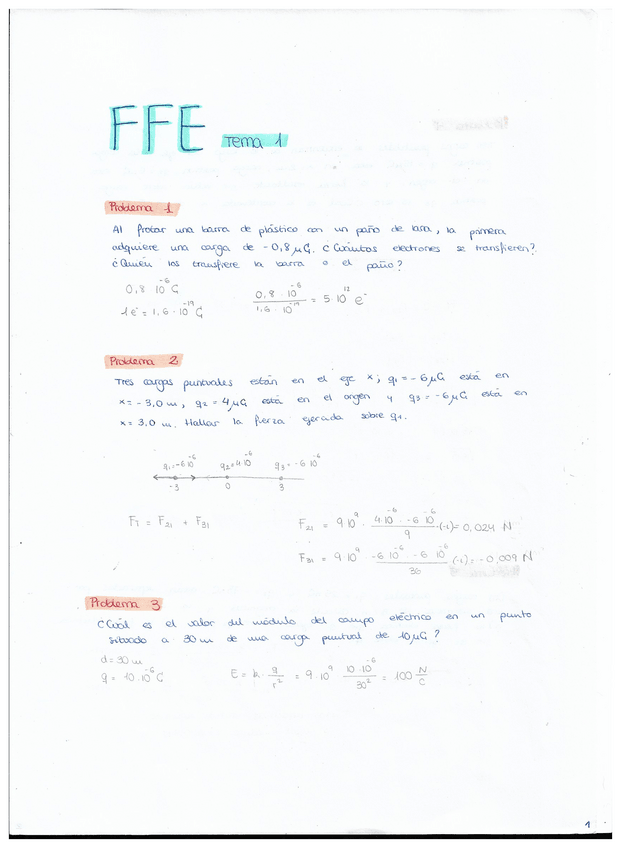 FFE Tema 1
Problema 1
Al frotar una barra de plástico con un paño de lana, la primera
adquiere una carga de -0,8 μC. ¿Cuántos electrones se transfieren?
¿Quién los transfiere la barra o el paño?
0,8 · 10^-6 C
1e^- = 1,6 · 10^-19 C
0,8 · 10^-6 / 1,6 · 10^-19 = 5·10^12 e^-
Problema 2
Tres cargas puntuales están en el eje x; q1 = -6 μC está en
x = -3,0 m, q2 = 4 μC está en el origen y q3 = -6 μC está en
x = 3,0 m. Hallar la fuerza ejercida sobre q1.
q1=-6 10^-6 q2=4 10^-6 q3=-6 10^-6
-3 0 3
FT = F21 + F31
F21 = 9·10^9 · 4·10^-6 · -6 10^-6 / 9 ·(-1) = 0,024 N
F31 = 9·10^9 · -6 10^-6 · -6 10^-6 / 36 (-1) = -0,009 N
Problema 3
¿Cuál es el valor del módulo del campo eléctrico en un punto
situado a 30 m de una carga puntual de 10 μC?
d = 30 m
q = 10·10^-6 C
E = k · q / r^2 = 9·10^9 · 10·10^-6 / 30^2 = 100 N/C
1